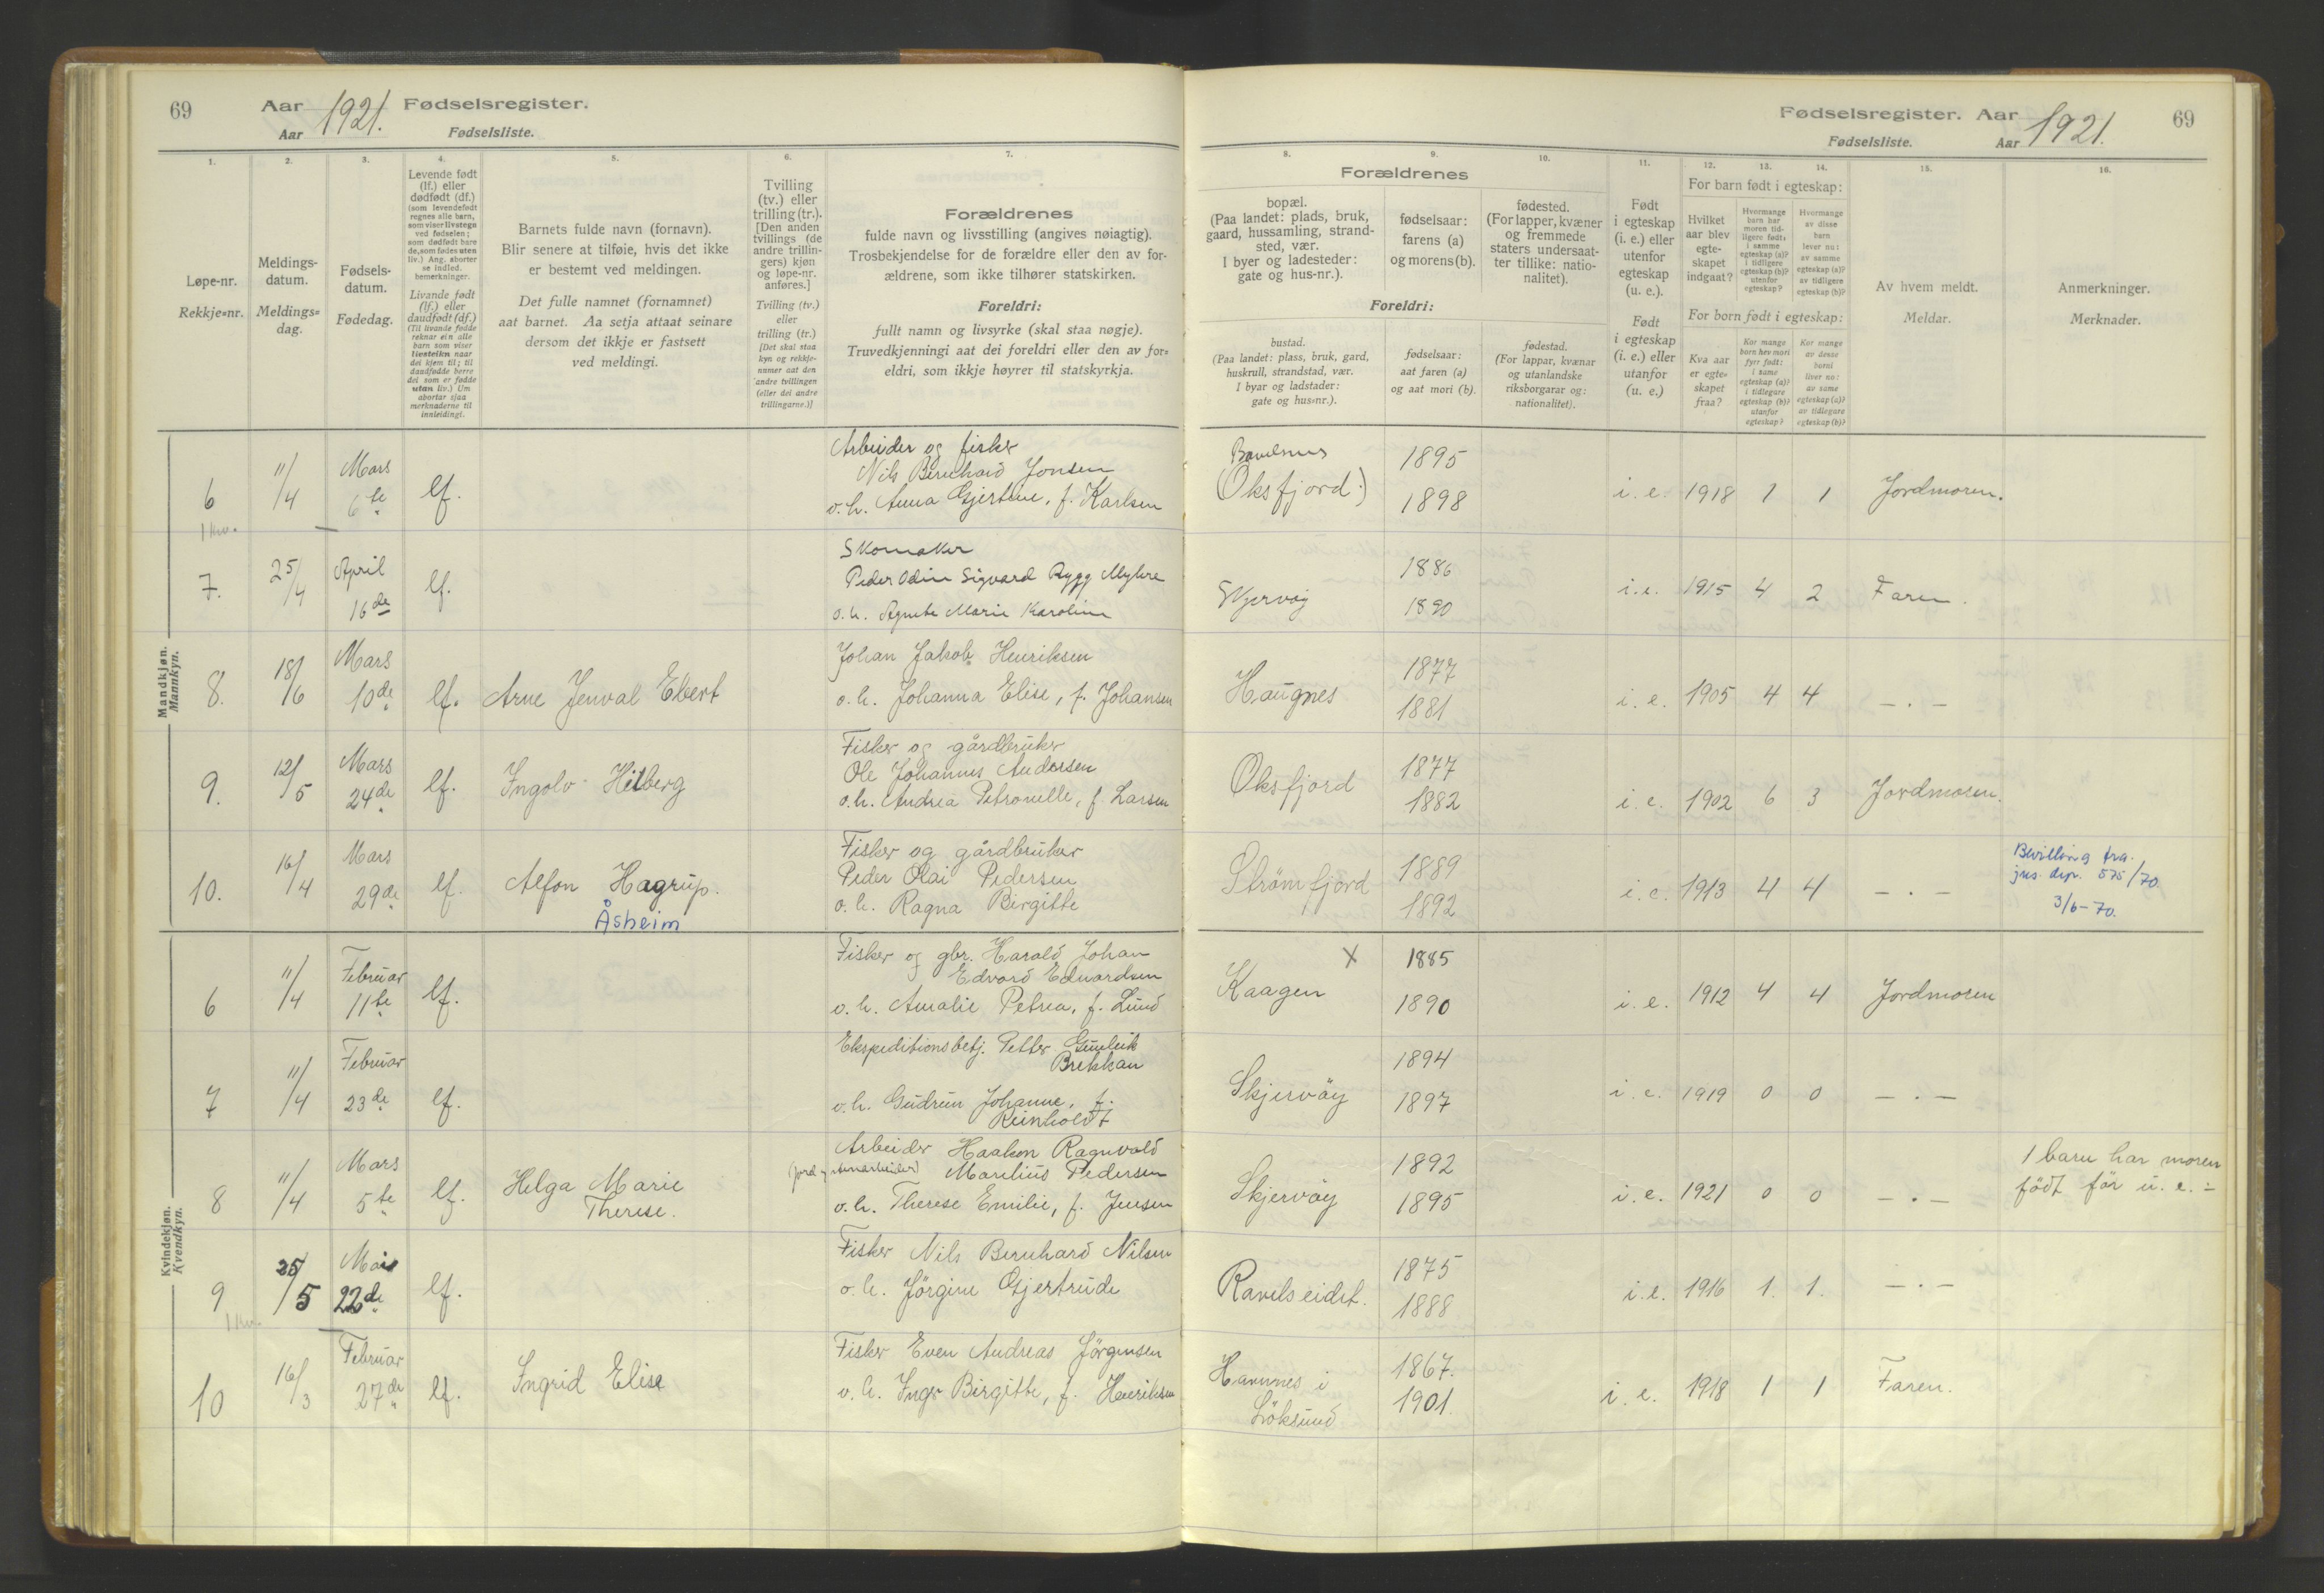 69
Aar 1921. Fødselsregister.
Aar
Fødselsliste.
1.
2.
3.
4.
5.
6.
7.
Løpe-nr.
Rekkje=nr.
Meldings-
datum.
Meldings=
dag.
Fødsels-
datum.
Fødedag.
Levende født
(lf.) eller
dødfødt (df.)
(som levendefødt
regnes alle barn,
som viser livstegn
ved fødselen;
som dødfødt bare
de, som fødes uten
liv.) Ang. aborter
se indled.
bemerkninger.
Livande født
(lf.) eller
daudfødt (df.)
(Til livande fødde
reknar ein alle
barn som viser
livsteikn naar
dei kjem til; til
daudfødde berre
dei som er fødde
utan liv.) Um
abortar sjaa
merknaderne til
innleidingi.
Barnets fulde navn (fornavn).
Blir senere at tilføie, hvis det ikke
er bestemt ved meldingen.
Det fulle namnet (fornamnet)
aat barnet. Aa setja attaat seinare
dersom det ikkje er fastsett
ved meldingi.
Tvilling
(tv.) eller
trilling (tr.).
[Den anden
tvillings (de
andre trillin-
gers) kjøn
og løpe-nr.
anføres.]
Tvilling (tv.)
eller
trilling (tr.)
[Det skal staa
kyn og rekkje-
numer aat den
andre tvillingen
(eller dei andre
trillingarne.)]
Forældrenes
fulde navn og livsstilling (angives nøiagtig).
Trosbekjendelse for de forældre eller den av for-
ældrene, som ikke tilhører statskirken.
Foreldri:
fullt namn og livsyrke (skal staa nøgje).
Truvedkjenningi aat dei foreldri eller den av for=
eldri, som ikkje høyrer til statskyrkja.
Mandkjøn.
Mannkyn.
6
1 kv.
11/4
Mars
6te
lf.
Arbeider og fisker
Nils Bernhard Jonsen
o.h. Anna Gjertine, f. Karlsen
7.
25/4
April
16de
lf.
Skomaker
Peder Odin Sigvard Rygg Myhre
o.h. Agnete Marie Karoline
8.
18/6
Mars
10de
lf.
Arne Jenval Ebert
Johan Jakob Henriksen
o.h. Johanna Elise, f. Johansen
9.
12/5
Mars
24de
lf.
Ingolv Hilberg
Fisker og gårdbruker
Ole Johannes Andersen
o.h. Andrea Petronelle, f. Larsen
10.
16/4
Mars
29de
lf.
Alfon Hagrup.
Åsheim
Fisker og gårdbruker
Peder Olai Pedersen
o.h. Ragna Birgitte
Kvindekjøn.
Kvendkyn.
6
11/4
Februar
11te
lf.
Fisker og gbr. Harald Johan
Edvard Edvardsen
o.h. Amalie Petrea, f. Lund
7
11/4
Februar
23de
lf.
Ekspeditionsbetj. Petter Gunleik
Brekkan
o.h. Gudrun Johanne, f.
Reinholdt
8
11/4
Mars
5te
lf.
Helga Marie
Therese.
Arbeider Haakon Ragnvald
Marelius Pedersen
o.h. Therese Emilie, f. Jensen
9
1 kv.
25/5
Mai
22de
lf.
Fisker Nils Bernhard Nilsen
o.h. Jörgine Gjertrude
10
16/3
Februar
27de
lf.
Ingrid Elise
Fisker Even Andreas Jörgensen
o.h. Inger Birgitte, f. Henriksen
Fødselsregister. Aar 1921.
69
Fødselsliste.
Aar
8.
9.
10.
11.
12.
13.
14.
15.
16.
Forældrenes
bopæl.
(Paa landet: plads, bruk,
gaard, hussamling, strand-
sted, vær.
I byer og ladesteder:
gate og hus-nr.).
fødselsaar:
farens (a)
og morens (b).
fødested.
(For lapper, kvæner
og fremmede
staters undersaat-
ter tillike: natio-
nalitet).
Foreldri:
bustad.
(Paa landet: plass, bruk, gard,
huskrull, strandstad, vær.
I byar og ladstader:
gate og hus=nr.).
fødselsaar:
aat faren (a)
og aat mori (b).
fødestad.
(For lappar, kvænar
og utanlandske
riksborgarar og:
nationalitet).
Født
i egteskap
(i. e.) eller
utenfor
egteskap
(u. e.).
Født
i egteskap
(i. e.) eller
utanfor
(u. e.)
For barn født i egteskap:
Hvilket
aar blev
egte-
skapet
indgaat?
Hvormange
barn har
moren tid-
ligere født:
i samme
egteskap (a)?
i tidligere
egteskap (b)?
utenfor
egteskap?
Hvormange
av disse
barn
lever nu:
av samme
egteskap (a)?
av tidligere
egteskap (b)?
For born født i egteskap:
Kva aar
er egte=
skapet
fraa?
Kor mange
born hev mori
fyrr født:
i same
egteskap (a)?
i tidlegare
egteskap (b)?
utanfor
egteskap?
Kor mange
av desse
borni
liver no:
av same
egteskap (a)?
av tidlegare
egteskap (b)?
Av hvem meldt.
Meldar.
Anmerkninger.
Merknader.
(Oksfjord.)
1895
1898
i. e.
1918
1
1
Jordmoren.
Skjervøy
1886
1890
i. e.
1915
4
2
Faren.
Haugnes
1877
1881
i. e.
1905
4
4
— . —
Oksfjord
1877
1882
i. e.
1902
6
3
Jordmoren.
Strömfjord
1889
1892
i. e.
1913
4
4
— . —
Bevilling fra.
jus. dep. 575/70
3/6-70.
Kaagen
X
1885
1890
i. e.
1912
4
4
Jordmoren
Skjervöy
1894
1897
i. e.
1919
0
0
— . —
Skjervöy
1892
1895
i. e.
1921
0
0
— . —
1 barn har moren
födt för u. e. -
Ravelseidet.
1875
1888
i. e.
1916
1.
1.
— . —
Havnnes i
Löksund
1867.
1901.
i. e.
1918
1
1
Faren.